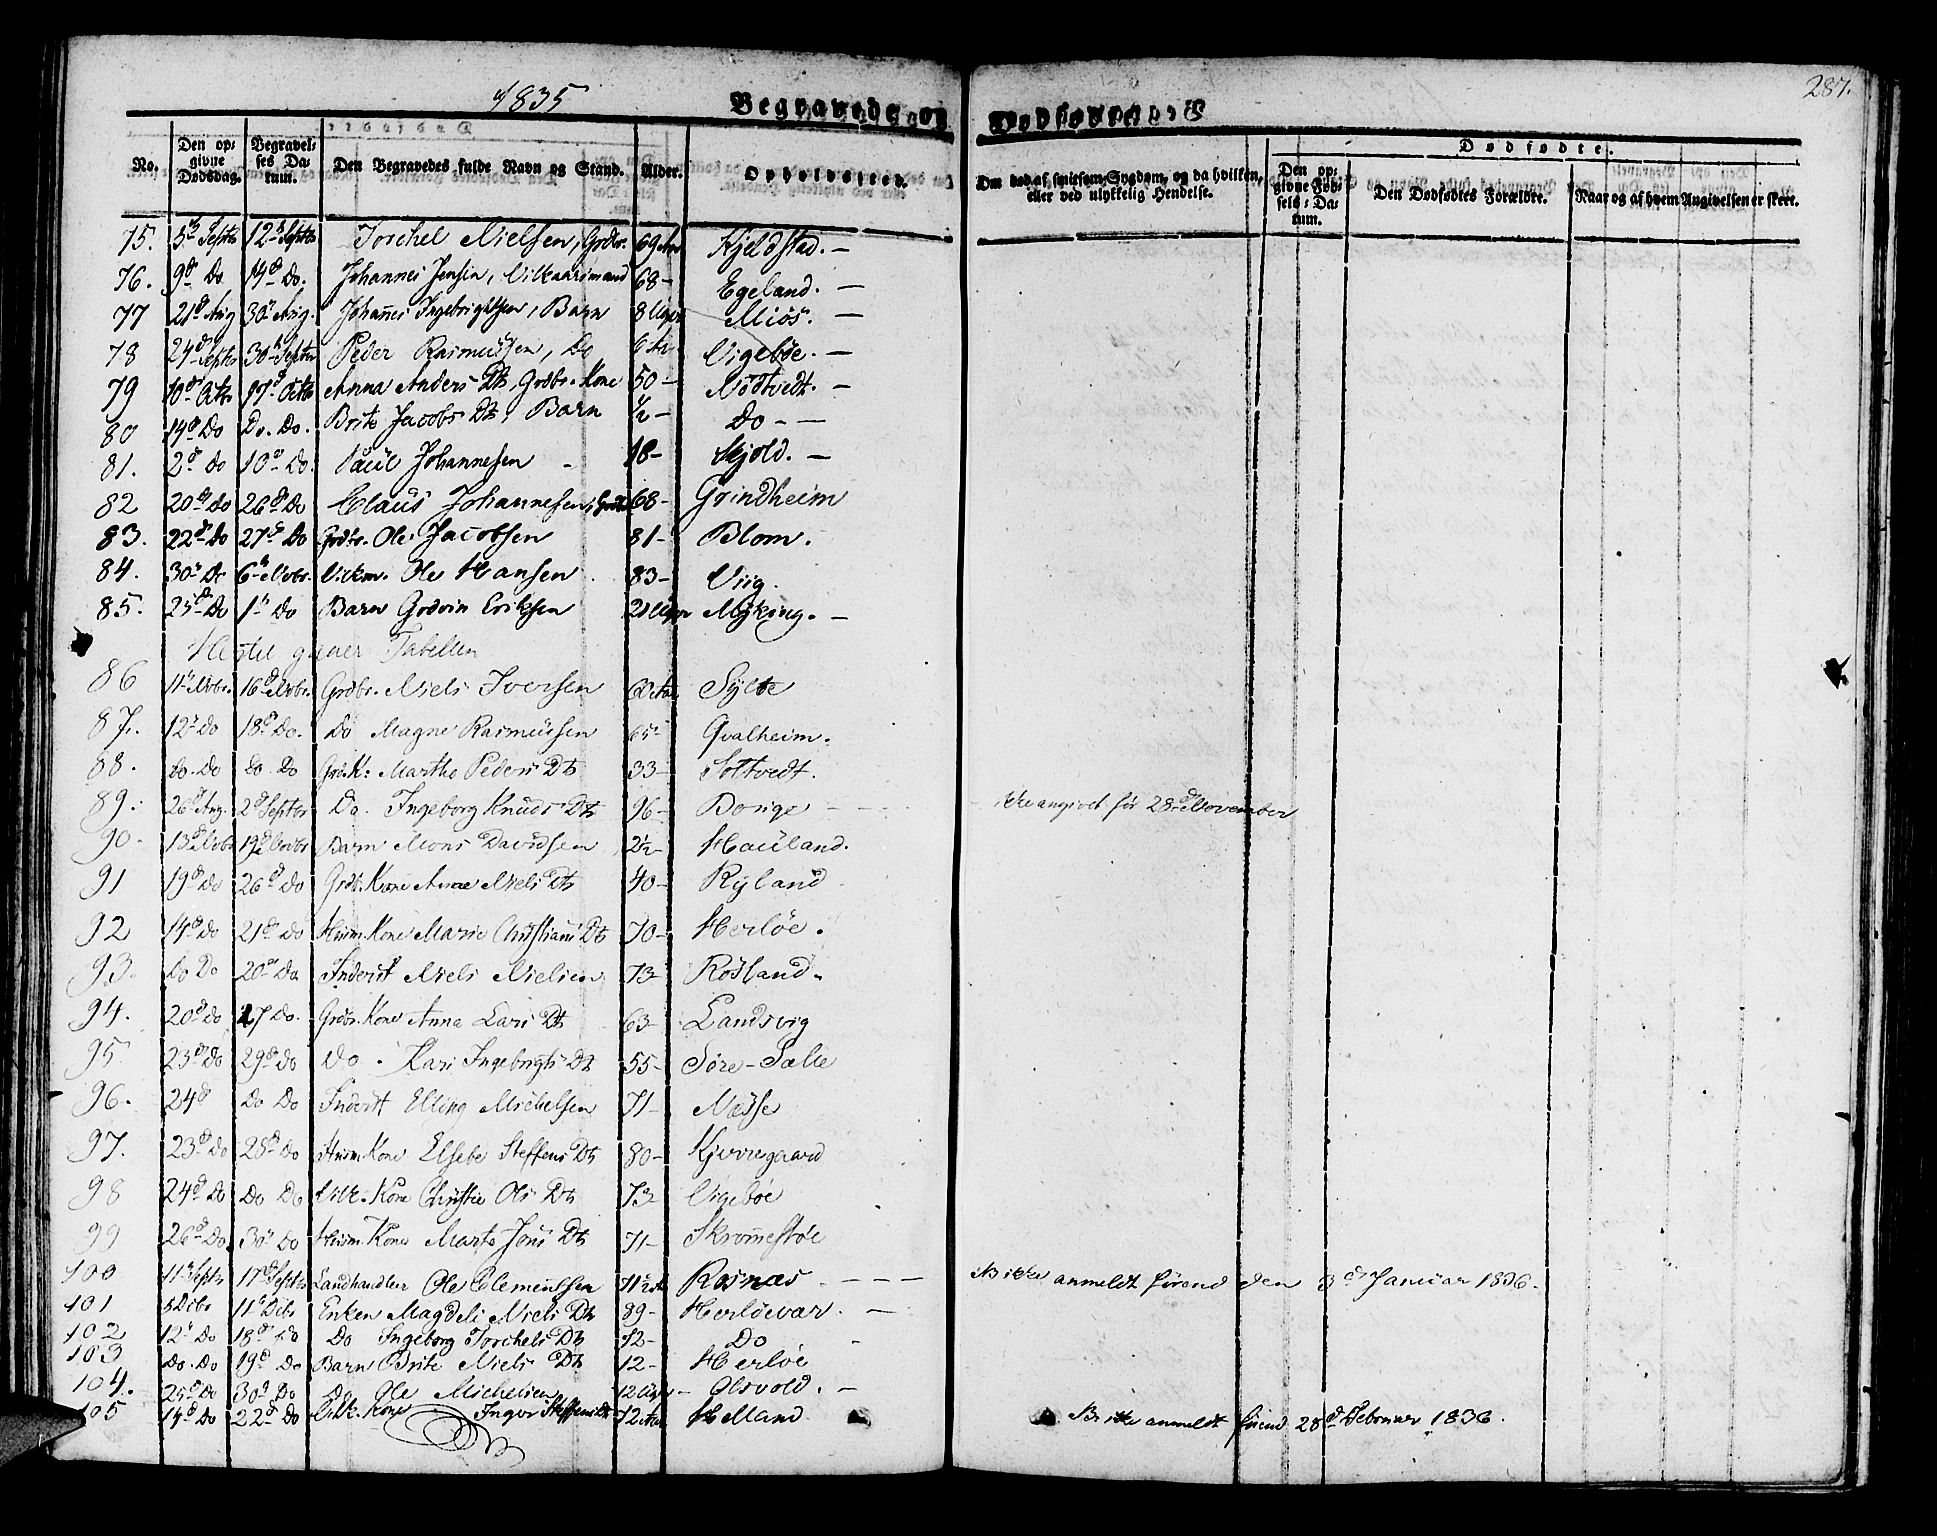 1835
Begravede og Dødfødte.
287.
No.
Den opgivne Dødsdag.
Begravelses Datum.
Den Begravedes fulde Navn og Stand.
Alder.
Opholdssted.
Om død af smitsom Sygdom, og da hvilken, eller ved ulykkelig Hendelse.
Dødfødte.
Den opgivne Fødsels-Datum.
Den Dødfødtes Forældre.
Naar og af hvem Angivelsen er skeet.
75. 5te Septbr 12te Septbr Torchel Nielsen, Grdbr. 69 Aar Kjeldstad. —
76. 9de Do 14de Do. Johannes Jensen, Vilkaarsmand 68 – Egeland. —
77 21de Aug 30te Aug. Johannes Ingebrigtsen, Barn 8 Uger Miøs. —
78 24de Septbr 30te Septbr Peder Rasmussen, Do Vigebøe. —
79 10de Octbr 17de Octbr Anna Anders Dtr, Grdbr. Kone 50 – Nödtvedt. —
80 14de Do Do. Do. Brite Jacobs Dtr, Barn ½ – Do – —
81. 2de Do 10de Do. Paul Johannesen – 18 – Skjold. —
82 20de Do 26de Do Claus Johannesen, Grdbr 68 – Grindheim
83. 22de Do 27de Do Grdbr. Ole Jacobsen 81 – Blom.
84. 30te Do 6te Novbr. Vilkm. Ole Hansen 83 – Viig.
85. 25de Do 1te Do Barn Gudvin Eriksen 21 Uger Myking. —
Hertil gaaer Tabellen
86 11te Novbr. 16de Novbr. Grdbr. Niels Iversen 60 Aar Sylte
87. 12te Do 18de Do. Do Magne Rasmussen 65 – Qvalheim.
88. Do. Do Do. Do Grdbr. K: Marthe Peders Dtr 33 – Soltvedt.
89. 26de Aug. 2de Septbr Do. Ingeborg Knuds Dtr 96 – Bonge – – ikke angivet før 28de November
90. 13de Novbr 19de Novbr Barn Mons Davidsen 2½ – Hauland.
91 19de Do 26de Do Grdbr. Kone Anna Niels Dtr 40 – Ryland
92 14de Do 21de Do Huusm. Kone Marie Christians Dtr 70 – Herløe.
93. Do Do 20de Do Inderst Niels Nielsen 73 – Rosland.
94. 20de Do 27 Do. Grdbr. Kone Anna Lars Dtr 63 – Landsvig
95. 23de Do 29de Do Do. Kari Ingebrigts Dtr 55 – Søre-Sæle
96. 24de Do Do Inderst Elling Michelsen 71 – Næsse
97. 23de Do 28de Do Huusm. Kone Elsebe Steffens Dtr 80 – Kjerregaard
98 24de Do Do Do Vilk. Kone Christie Ols Dtr 73 – Vigebøe
99 26de Do. 30te Do Huusm. Kone Marte Jons Dtr 71 – Skromestøe
100 11te Septbr 17de Septbr Landhandler Ole Clemensen Rosnæs – – – – NB ikke anmeldt førend den 3de Januar 1836.
101 Decbr 11te Decbr Enken Magdeli Niels Dtr 89 – Herløevær. —
102 12te Do 18de Do Do Ingeborg Torchels Dtr 12 – Do –
103 Do. Do 19de Do Barn Brite Niels Dtr 12 – Herløe
104. 25de Do 30te Do Do Ole Michelsen 12 Uger – Olsvold. —
105 14de Do 22de Do Vilk. Kone Inger Steffens Dtr 72 Aar Helland NB ikke anmeldt førend 28de Februar 1836.